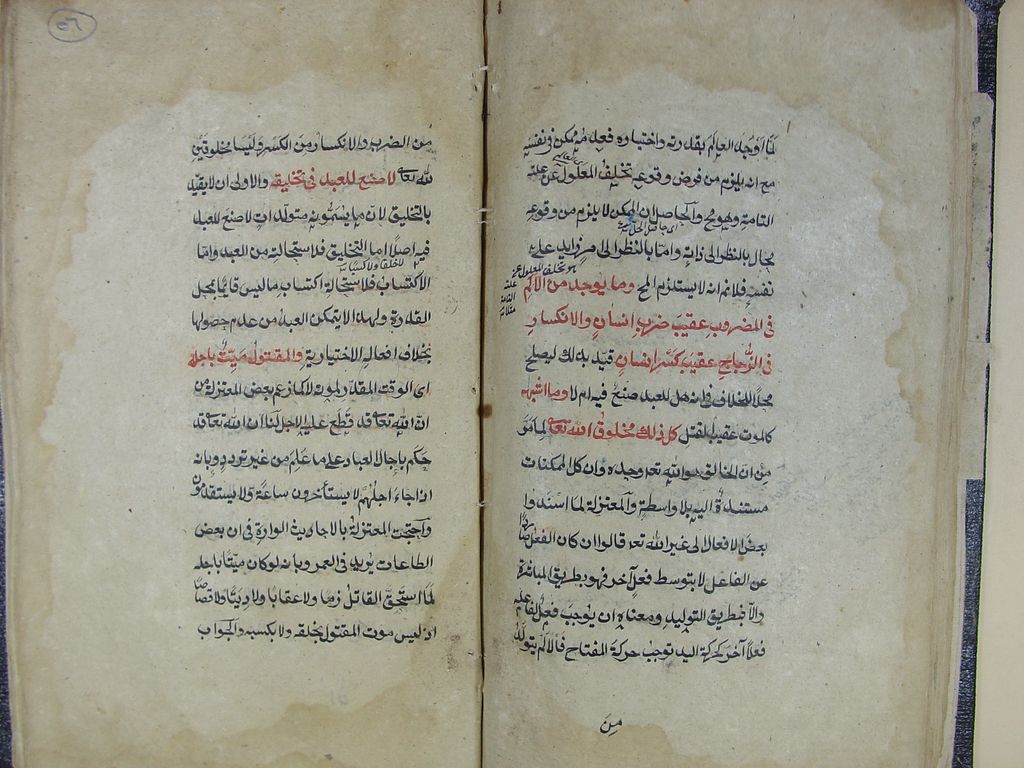 لما اوجد العالم بقدرته واختياره فعدمه ممكن في نفسه
مع انه يلزم من فرض وقوعه تخلف المعلول عن علته
التامة وهو مح والحاصل ان الممكن لا يلزم من وقوعه
محال بالنظر الى ذاته واما بالنظر الى امر زايد على
نفسه فلانم انه لا يستلزم المح وما يوجد من الالم
في المضروب عقيب ضرب انسان والانكسار
في الزجاج عقيب كسر انسان قيد بذلك ليصلح
محلا للخلاف في انه هل للعبد صنع فيه ام لا وما اشبهه
كالموت عقيب القتل كل ذلك مخلوق الله تعالى لما مر
من ان الخالق هو الله تعه وحده وان كل الممكنات
مستندة اليه بلا واسطة والمعتزلة لما اسندوا
بعض الافعال الى غير الله تعه قالوا ان كان الفعل صادرا
عن الفاعل لا بتوسط فعل آخر فهو بطريق المباشرة
والا فبطريق التوليد ومعناه ان يوجب فعل لفاعله
فعلا آخر كحركة اليد توجب حركة المفتاح فالالم يتولد
من
٥٦
من الضرب والانكسار من الكسر وليسا مخلوقين
لله تعالى لا صنع للعبد في تخليقه والاولى ان لا يقيد
بالتخليق لان ما يسمونه متولدات لا صنع للعبد
فيه اصلا اما التخليق فلاستحالته من العبد واما
الاكتساب فلاستحالة اكتساب ما ليس قايما بمحل
القدرة ولهذا لا يتمكن العبد من عدم حصولها
بخلاف افعاله الاختيارية والمقتول ميت باجله
اى الوقت المقدر لموته لا كما زعم بعض المعتزلة من
ان الله تعالى قد قطع عليه الاجل لنا ان الله تعالى قد
حكم باجال العباد على ما علم من غير تردد وبانه
اذا جاء اجلهم لا يستأخرون ساعة ولا يستقدمون
واحتجت المعتزلة بالاحاديث الواردة في ان بعض
الطاعات يزيد في العمر وبانه لو كان ميتا باجله
لما استحق القاتل ذما ولا عقابا ولا دية ولا قصاصا
اذ ليس موت المقتول بخلقه ولا بكسبه والجواب